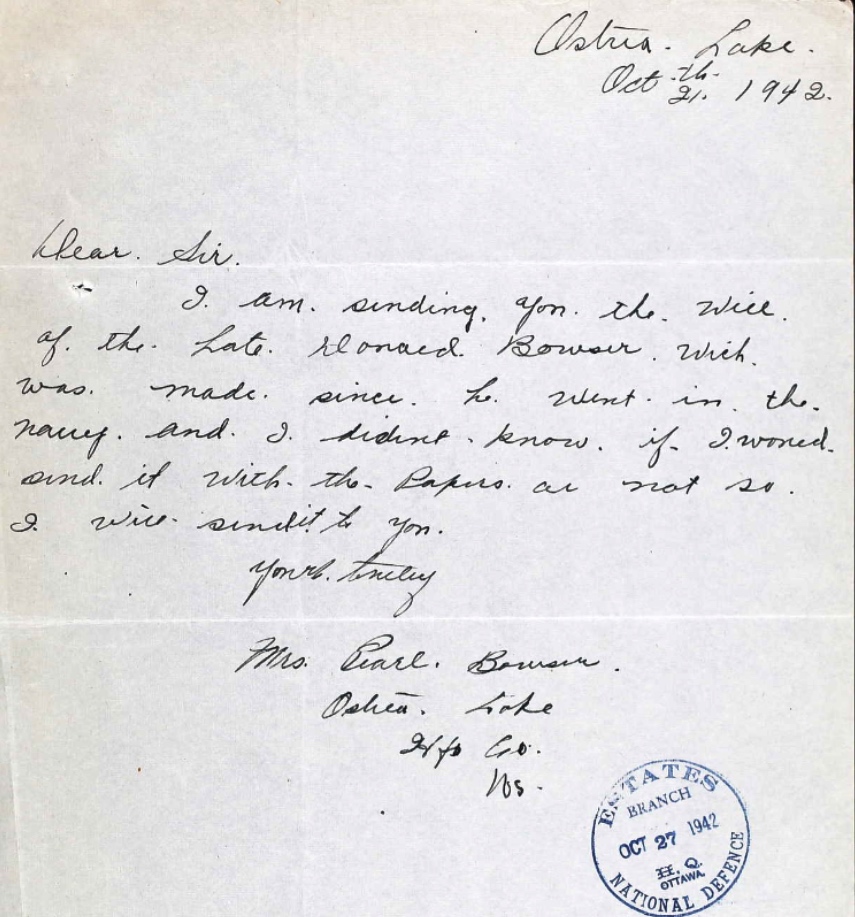 Ostrea. Lake.
Oct 21.th 1942.
Dear. Sir.
I. am. sending. you. the. will.
of. the. Late. Donald. Bowser. Wich.
was. made. since. he. went. in. the.
navey. and. I. didint. know. if. I. would.
send. it with. the. Papers. or not so.
I. will. send it to you.
yours. truley
Mrs. Pearl. Bowser.
Ostrea. Lake
Hfx Co.
Ns.
ESTATES
BRANCH
OCT 27 1942
H. Q.
OTTAWA.
NATIONAL DEFENCE